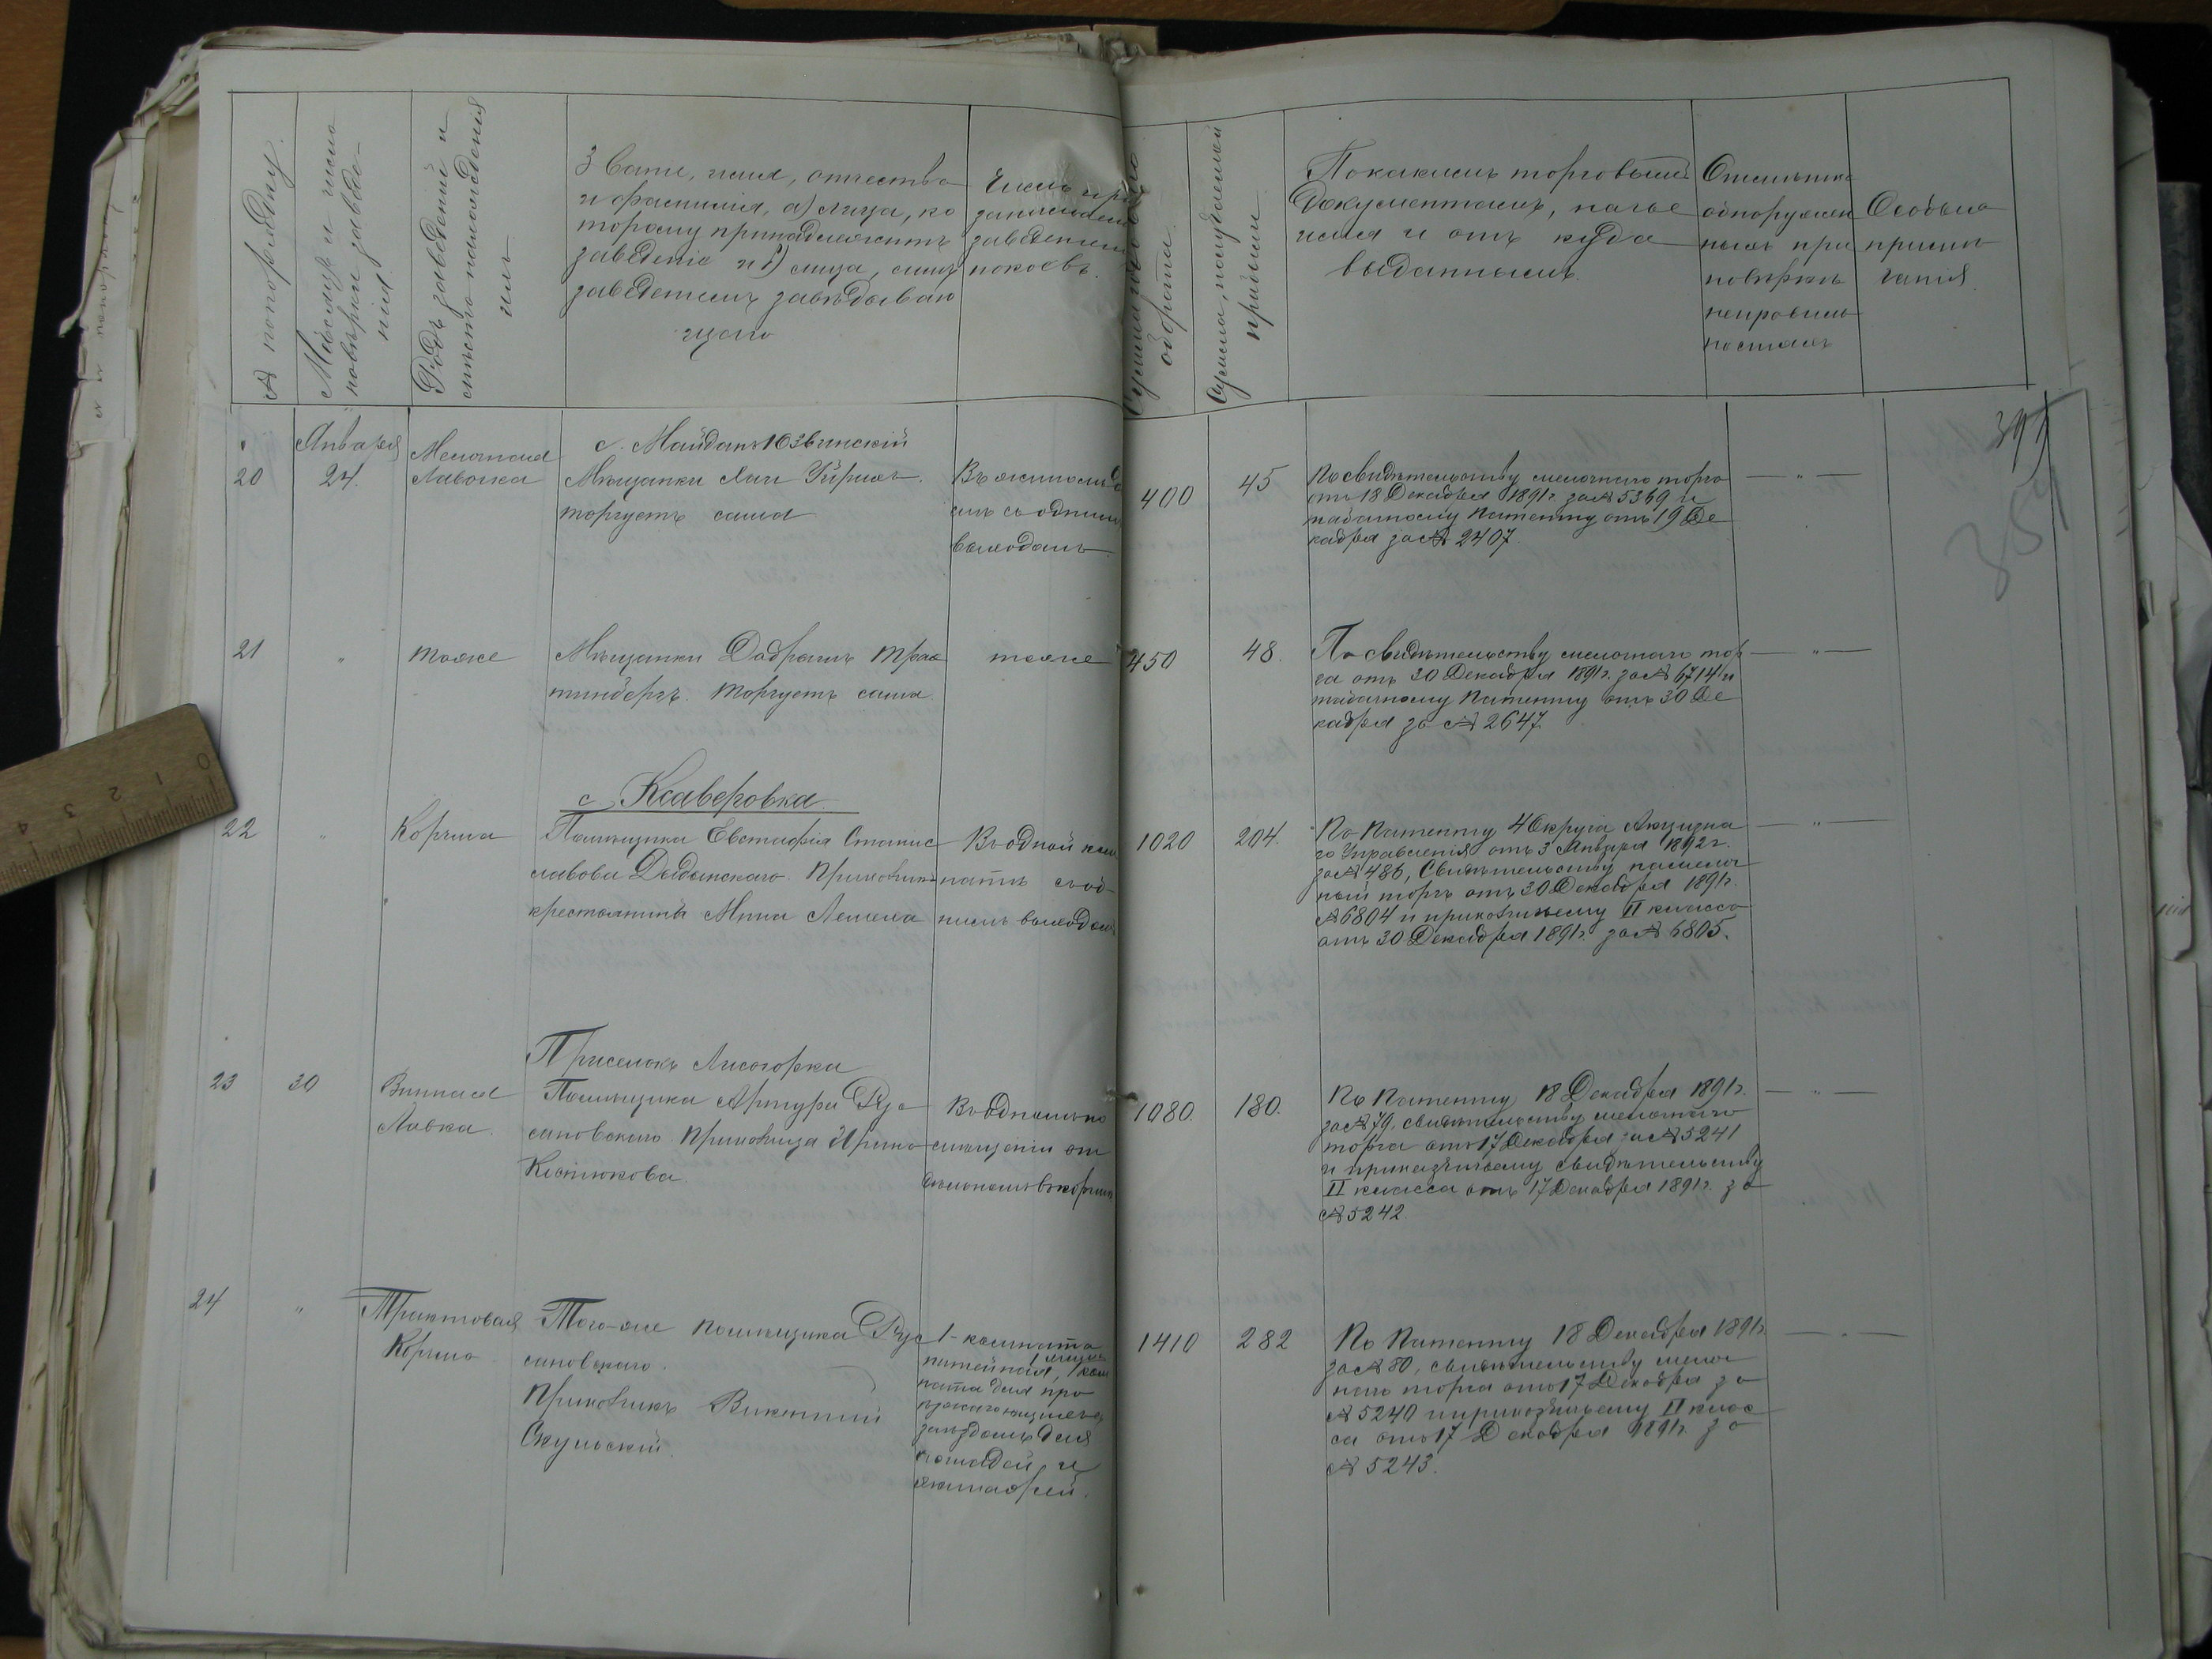 № по порядку.
Мѣсяцъ и число
повѣрки заведе-
нія
Родъ заведеній и
мѣсто нахожденія
ихъ
Званіе, имя, отчество
и фамилія, а) лица, ко
торому принадлежитъ
заведеніе и б) лица, симъ
заведеніемъ завѣдываю
щаго
Число при
занимаемыхъ
заведеніемъ
покоевъ.
Сумма годоваго
оборота.
Сумма, получаемой
прибыли
По какимъ торговымъ
документамъ, на чье
имя и отъ куда
выданнымъ.
Отмѣтка
обнаружен
ныхъ при
повѣркѣ
неправиль
ностяхъ
Особыя
примѣ
чанія
397
354
Января
с. Майданъ Юзвинскій
20
24.
Мелочная
Лавочка
Мѣщанки Хаи Уйрихъ.
торгуетъ сама
съ однимъ
выходомъ
400
45
По свидѣтельству мелочнаго торга
отъ 18 Декабря 1891 г. за № 5369 и
табачному патенту отъ 19 Де
кабря за № 2407.
— " —
21
"
тоже
Мѣщанки
торгуетъ сама
тоже
450
48.
По свидѣтельству мелочнаго тор
га отъ 30 Декабря 1891 г. за № 6714 и
табачному патенту отъ 30 Де
кабря за № 2647.
— " —
с. Ксаверовка
22
"
Корчма
Помѣщика Евстафія Станис
лавова Дыдынскаго. Прикащикъ
крестьянинъ Мина
Въ одной ком
натѣ съ од-
нимъ выходомъ
1020
204.
По патенту 4 Округа Акцизна
го Управленія отъ 3 Января 1892 г.
за № 486, Свидѣтельству на мелоч
ный торгъ отъ 30 Декабря 1891 г.
№ 6804 и прикащичьему II класса
отъ 30 Декабря 1891 г. за № 6805.
— " —
Приселокъ Лисогорка
23
30
Винная
Лавка.
Помѣщика Артура Рус
сановскаго. Прикащица Ирина
Костюкова
Въ одномъ по
мѣщеніи от
дѣльномъ въ корчмѣ
1080.
180.
По патенту 18 Декабря 1891 г.
за № 79, свидѣтельству мелочнаго
торга отъ 17 Декабря за № 5241
и приказчичьему свидѣтельству
II класса отъ 17 Декабря 1891 г. за
№ 5242.
— " —
24
"
Трактовая
Корчма
Того-же помѣщика Рус
сановскаго.
Прикащикъ Викентій
Окульскій.
1 - комната
питейная, 1 ком
ната для про
ѣзжающихъ
заѣздомъ для
лошадей и
экипажей.
1410
282
По патенту 18 Декабря 1891 г.
за № 80, свидѣтельству мелоч
наго торга отъ 17 Декабря за
№ 5240 и приказчичьему II клас
са отъ 17 Декабря 1891 г. за
№ 5243.
— " —
0 1 2 3 4